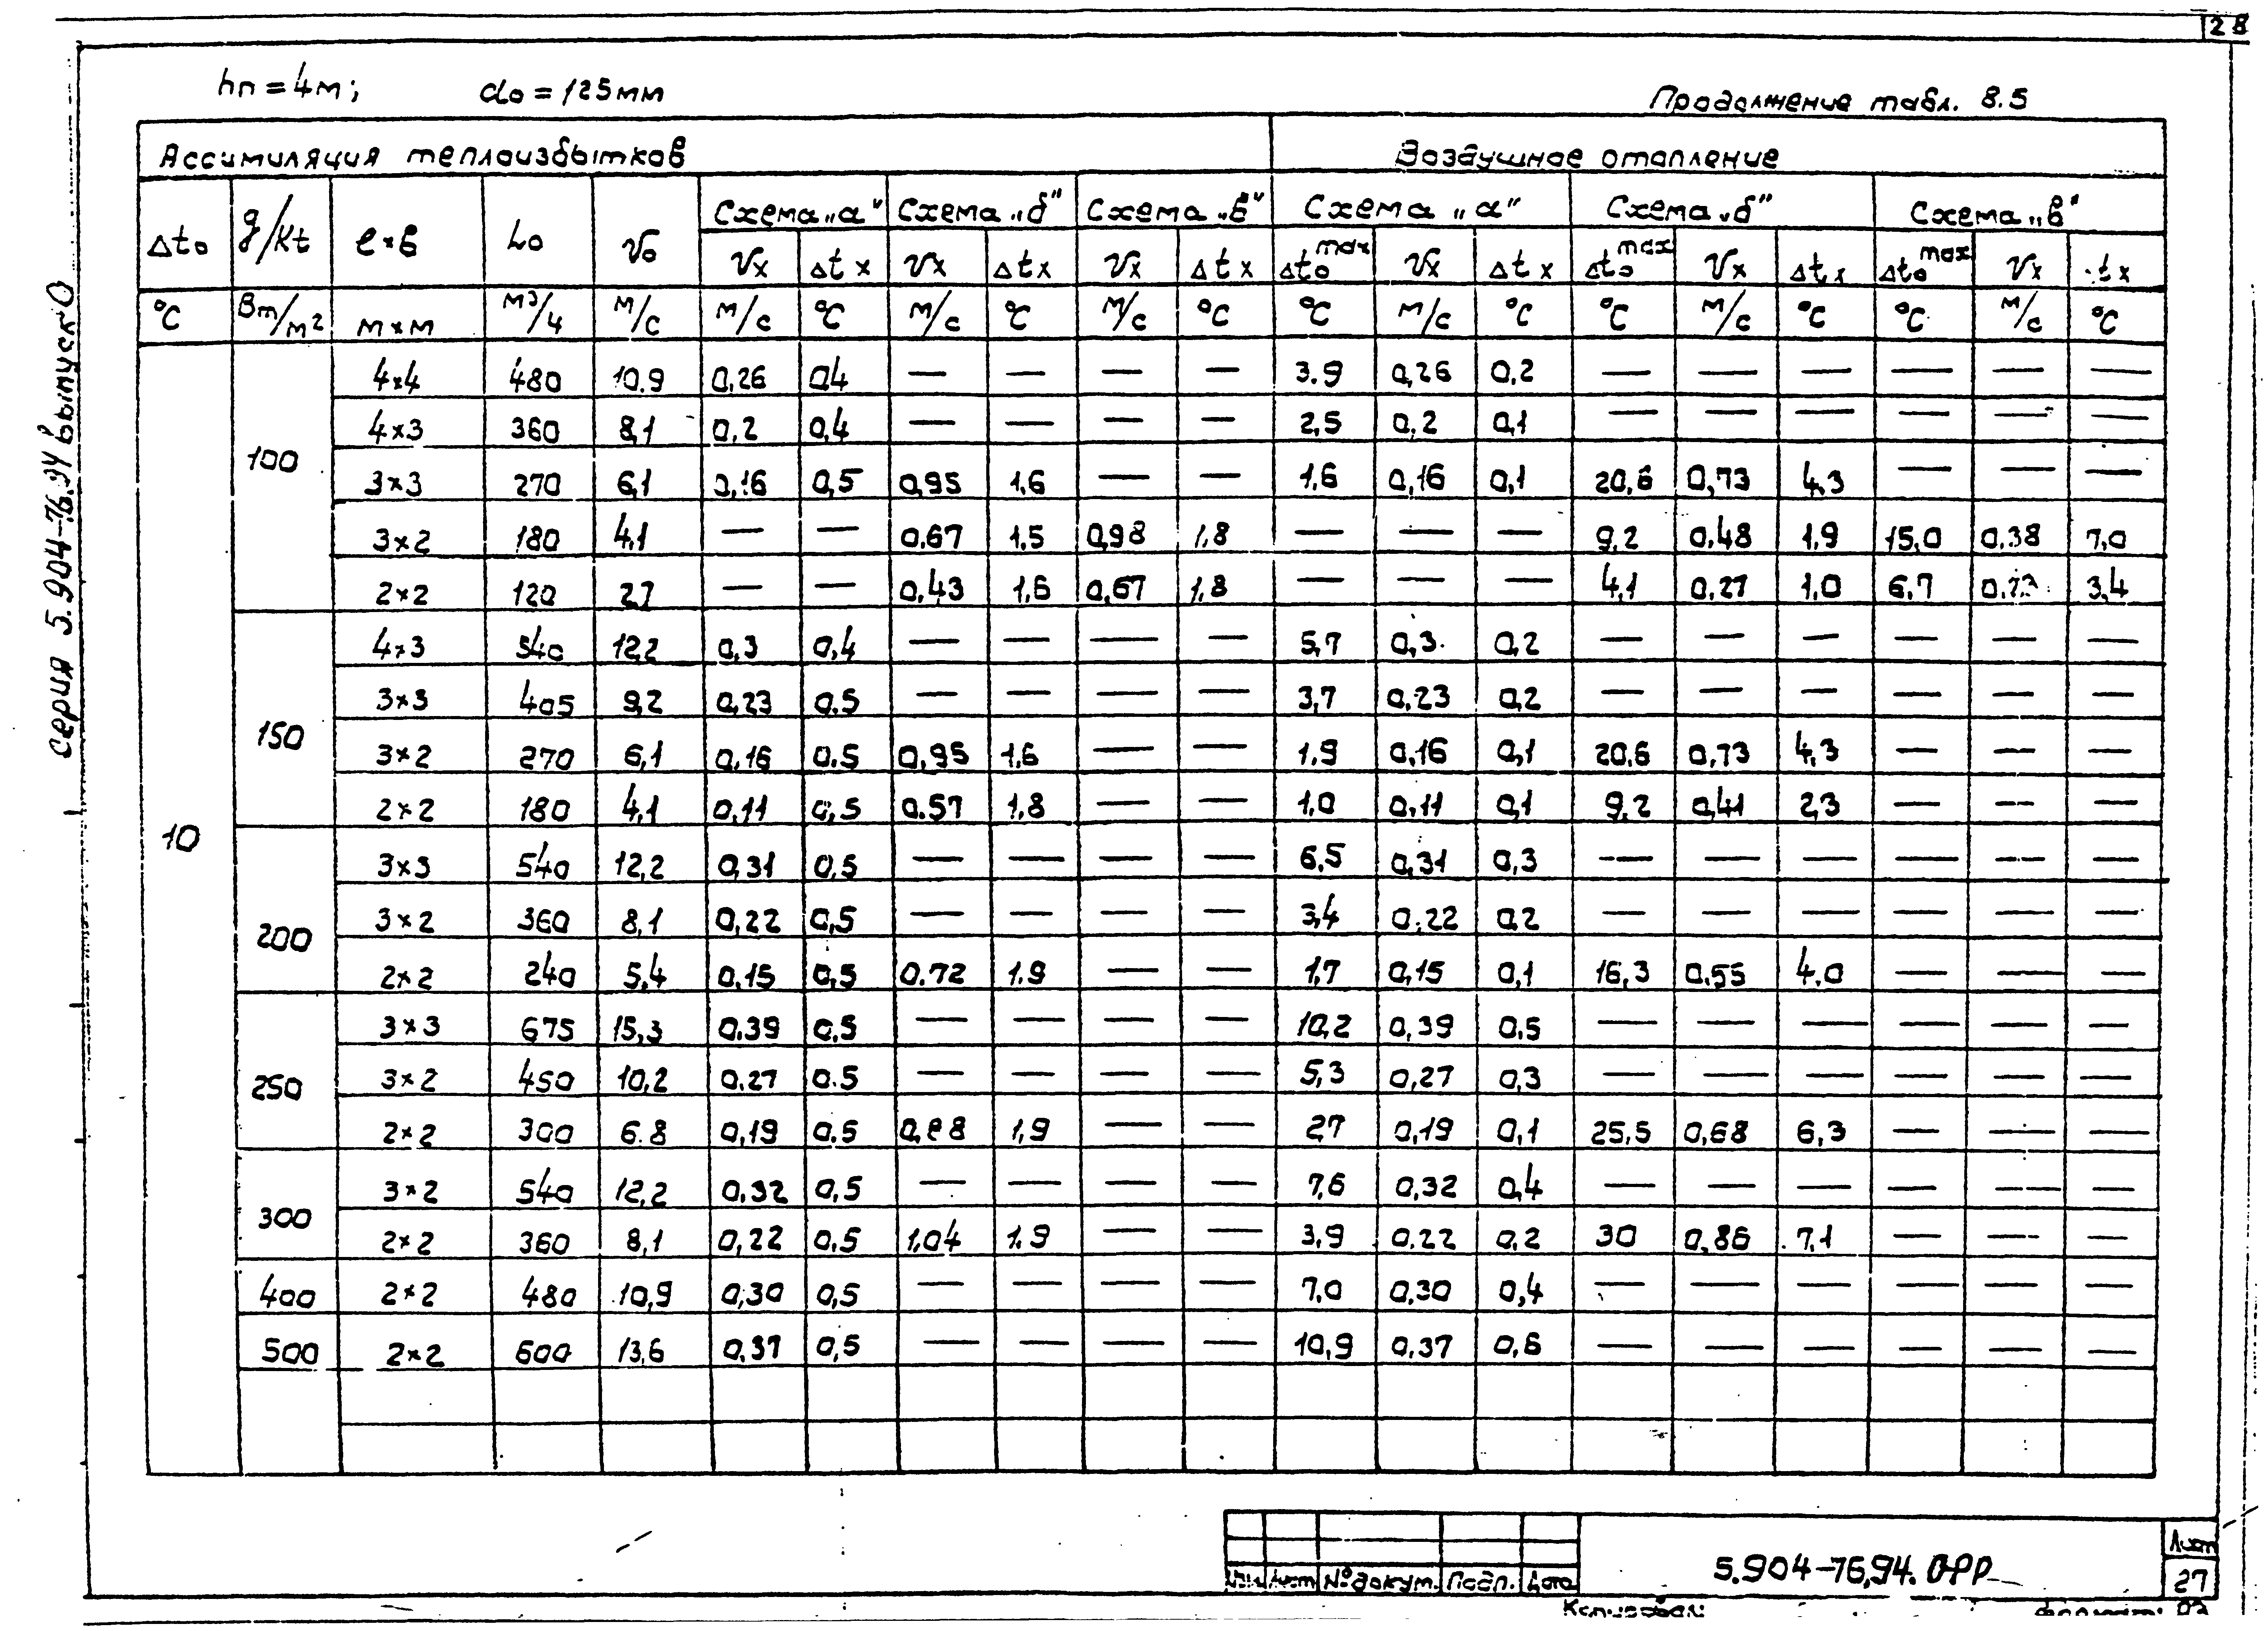 28
hп = 4м; do = 125мм
Продолжение табл. 8.5
серия 5.904-76.94 выпуск 0
Ассимиляция теплоизбытков Воздушное отопление
Δto g/Kt ℓ×в Lo Vo Схема „а" Схема „б" Схема „в" Схема „а" Схема „б" Схема „в"
Vx Δtx Vx Δtx Vx Δtx Δto max Vx Δtx Δto max Vx Δtx Δto max Vx tx
°C Вт/м² м×м м³/ч м/с м/с °C м/с °C м/с °C °C м/с °C °C м/с °C °C м/с °C
10
100 4×4 480 10.9 0,26 0,4 — — — — 3.9 0,26 0,2 — — — — — —
4×3 360 8,1 0,2 0,4 — — — — 2,5 0,2 0,1 — — — — — —
3×3 270 6,1 0,16 0,5 0,95 1,6 — — 1,6 0,16 0,1 20,6 0,73 4,3 — — —
3×2 180 4,1 — — 0,67 1,5 0,98 1,8 — — — 9,2 0,48 1,9 15,0 0,38 7,0
2×2 120 2,7 — — 0,43 1,6 0,67 1,8 — — — 4,1 0,27 1,0 6,7 3,4
150 4×3 540 12,2 0,3 0,4 — — — — 5,7 0,3 0,2 — — — — — —
3×3 405 9,2 0,23 0,5 — — — — 3,7 0,23 0,2 — — — — — —
3×2 270 6,1 0,16 0,5 0,95 1,6 — — 1,9 0,16 0,1 20,6 0,73 4,3 — — —
2×2 180 4,1 0,11 0,5 0,57 1,8 — — 1,0 0,11 0,1 9,2 0,41 2,3 — — —
200 3×3 540 12,2 0,31 0,5 — — — — 6,5 0,31 0,3 — — — — — —
3×2 360 8,1 0,22 0,5 — — — — 3,4 0,22 0,2 — — — — — —
2×2 240 5,4 0,15 0,5 0,72 1,9 — — 1,7 0,15 0,1 16,3 0,55 4,0 — — —
250 3×3 675 15,3 0,39 0,5 — — — — 10,2 0,39 0,5 — — — — — —
3×2 450 10,2 0,27 0,5 — — — — 5,3 0,27 0,3 — — — — — —
2×2 300 6.8 0,19 0,5 0,88 1,9 — — 2,7 0,19 0,1 25,5 0,68 6,3 — — —
300 3×2 540 12,2 0,32 0,5 — — — — 7,6 0,32 0,4 — — — — — —
2×2 360 8,1 0,22 0,5 1,04 1,9 — — 3,9 0,22 0,2 30 0,86 7,1 — — —
400 2×2 480 10,9 0,30 0,5 — — — — 7,0 0,30 0,4 — — — — — —
500 2×2 600 13,6 0,37 0,5 — — — — 10,9 0,37 0,6 — — — — — —
Лист № докум. Подп. Дата
5.904-76.94. ОРР
Лист
27
Копировал